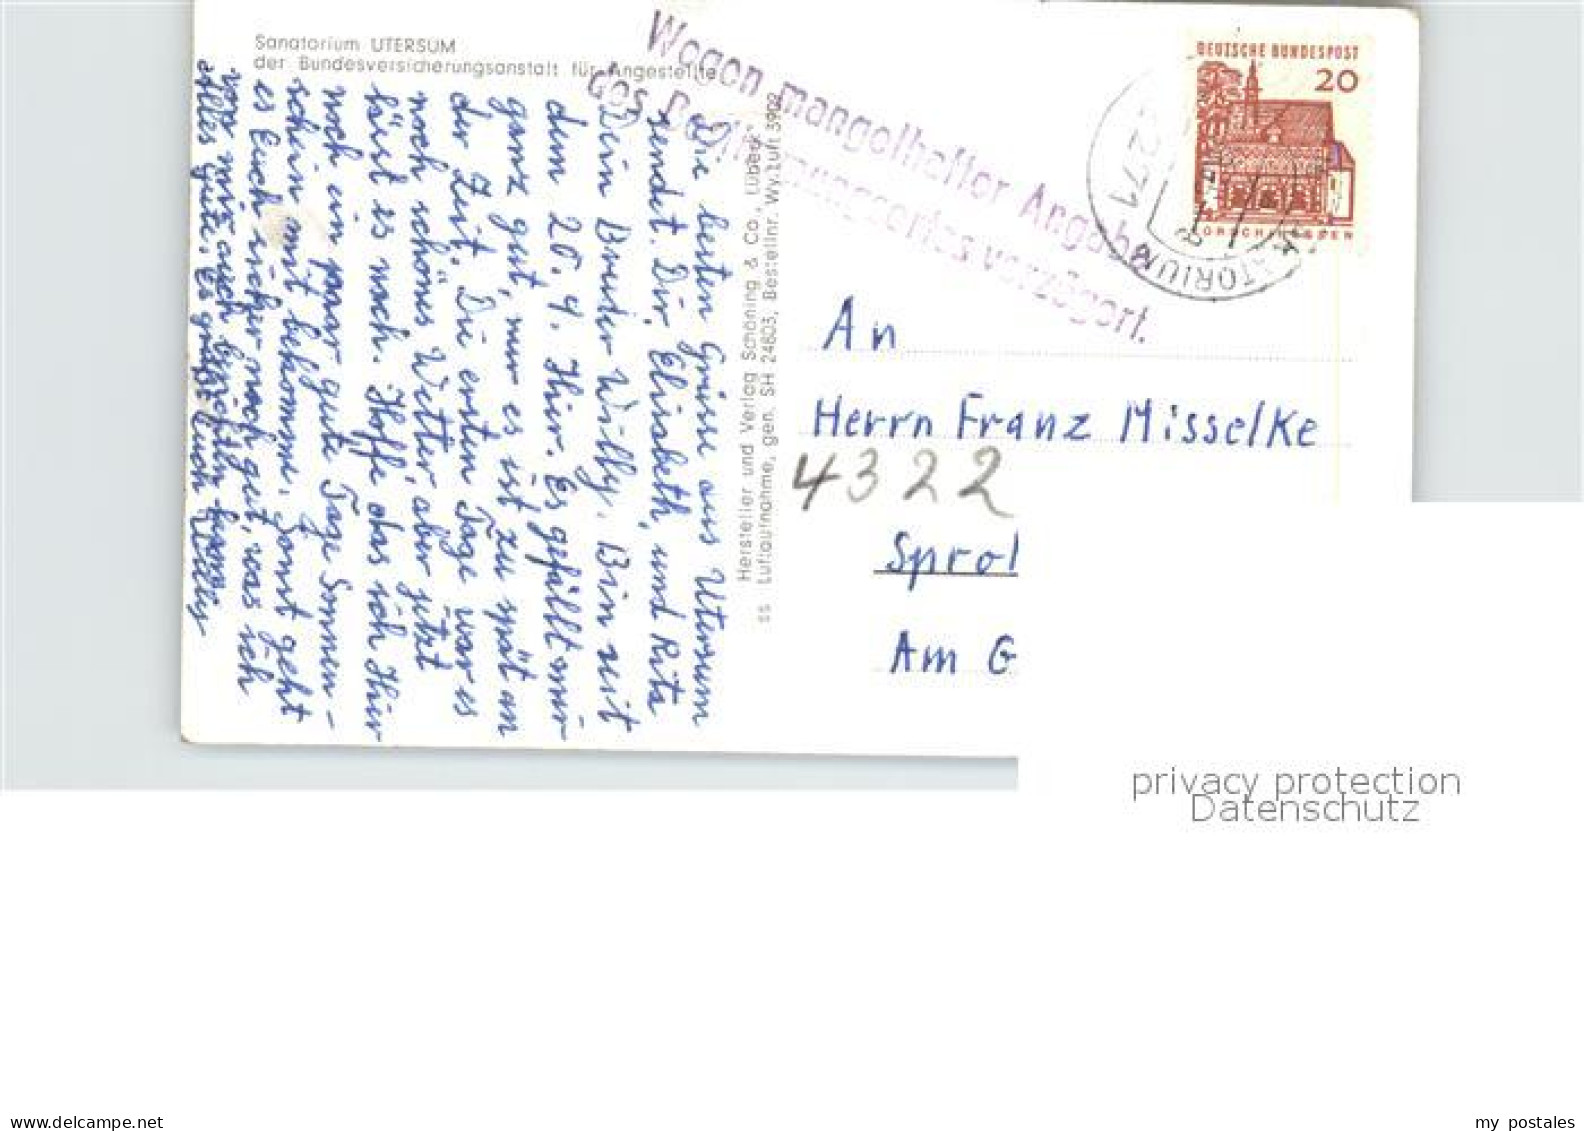 Sanatorium UTERSUM
der Bundesversicherungsanstalt für Angestellte
Wegen mangelhafter Angabe
des Bestimmungsortes verzögert.
DEUTSCHE BUNDESPOST
20
LORSCH/HESSEN
2271
SANATORIUM
Die besten Grüsse aus Utersum
sendet. Dir, Elisabeth, und Rita
Dein Bruder Willy. Bin seit
dem 20.4. Hier. Es gefällt mir
ganz gut, nur es ist zu spät an
der Zeit. Die ersten Tage war es
noch schönes Wetter, aber jetzt
lässt es nach. Hoffe das ich Hier
noch ein paar gute Tage Sonnen-
schein mit bekomme. Sonst geht
es Euch sicher noch gut, was ich
von mir auch berichten kann
Alles gute. Es grüßt Euch Willy
Hersteller und Verlag Schöning & Co., Lübeck
ss Luftaufnahme, gen. SH 24603, Bestellnr. Wy.Luft 3902
An
Herrn Franz Misselke
4322
Sprol
Am G
privacy protection
Datenschutz
www.delcampe.net
my postales